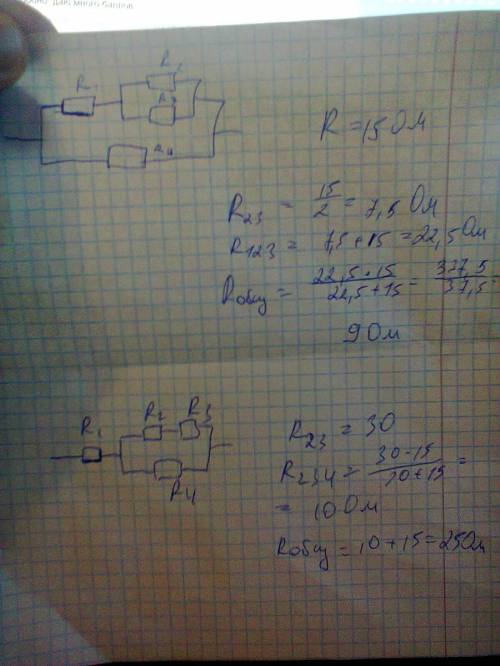 даю много баллов
R1 R2
R3
R4
R = 15 Ом
R23 = 15/2 = 7,5 Ом
R123 = 7,5 + 15 = 22,5 Ом
Rобщ = 22,5 · 15 / 22,5 + 15 = 337,5 / 37,5 =
9 Ом
R1 R2 R3
R4
R23 = 30
R234 = 30 · 15 / 30 + 15 =
= 10 Ом
Rобщ = 10 + 15 = 25 Ом